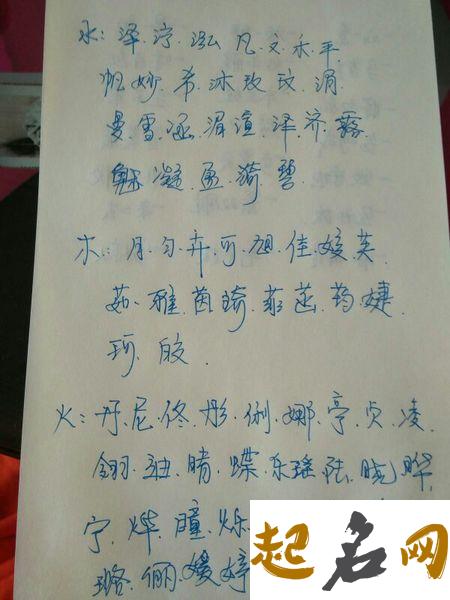 水:泽.泞.泓.凡.文.禾.平.
帆妙.希.冰.玫.玟.湄.
曼.雪.涵.湄渲.泽.济.露.
魅.凝.盈.漪.碧.
木:月.匀.卉.可.旭.佳.媛.芙
茹.雅.茵.琦.菲.菡.药.婕.
珂.皎.
火:丹.尼.佟.彤.俐.娜.亭.贞.凌.
翎.迪.晴.蝶.东.瑶.陆.晓.晔.
宁.烨.瞳.烁
璐.俪.媛.婷
起名网